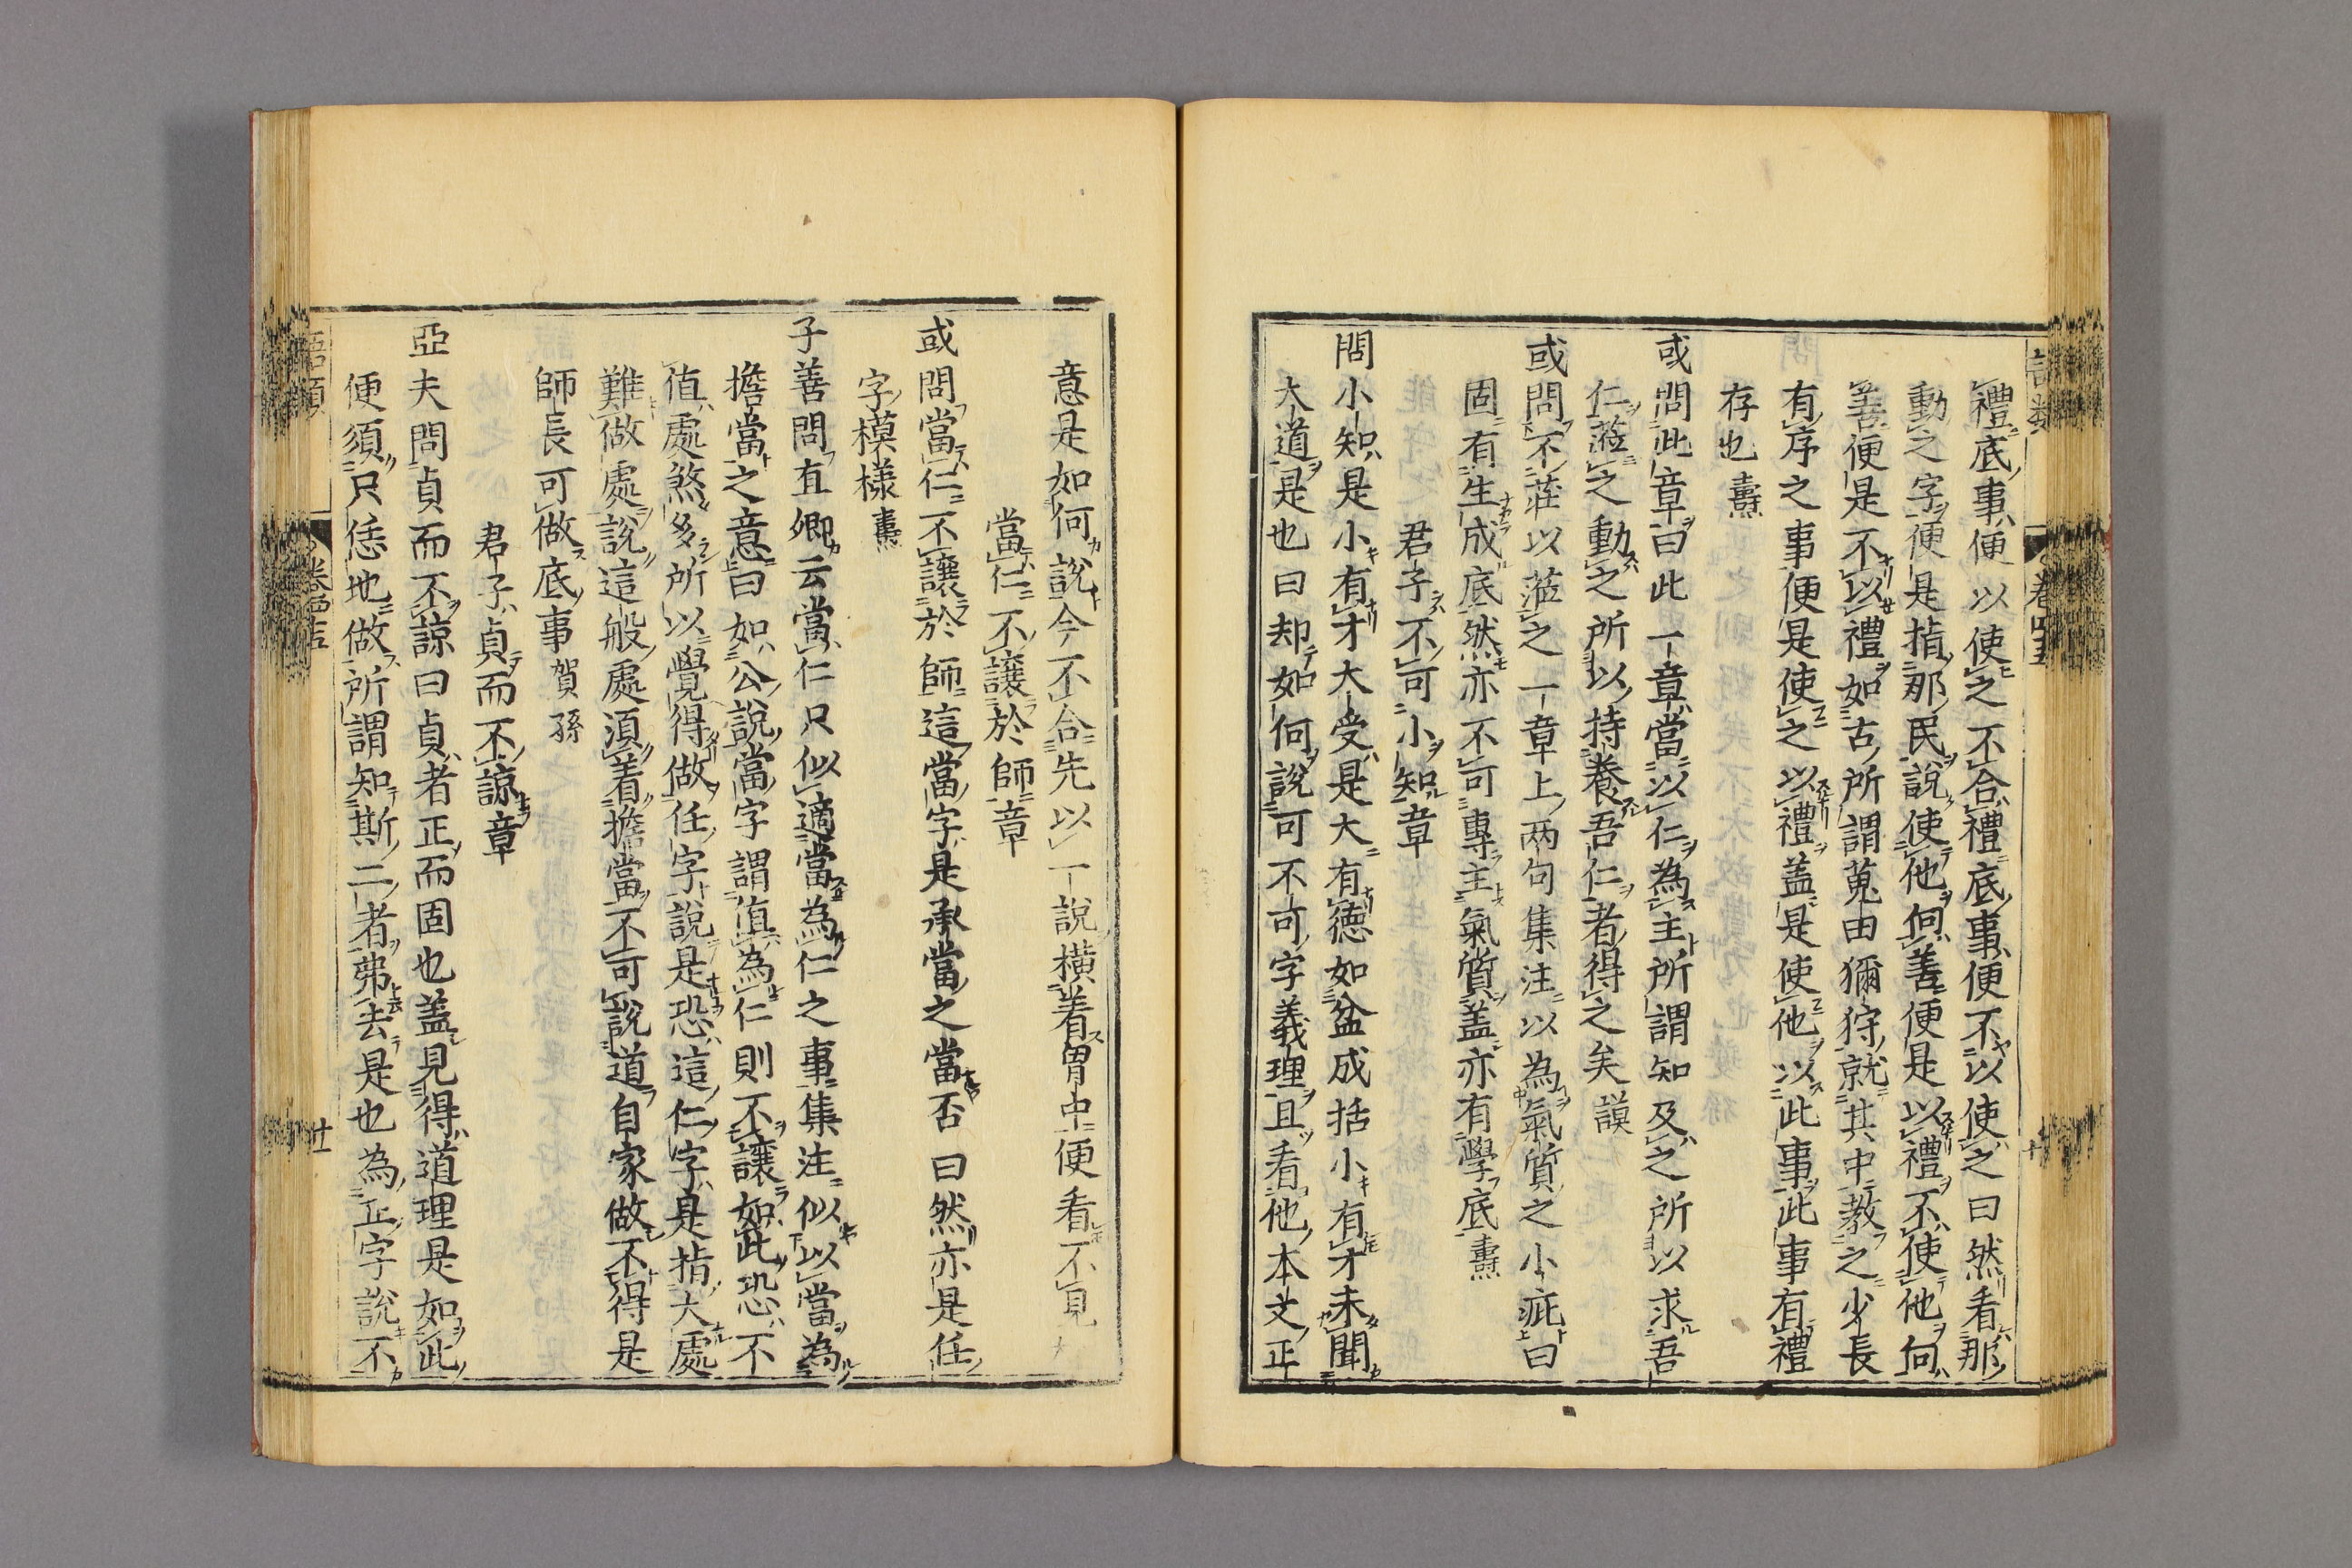 禮底事便以使之不合禮底事便不以使之曰然看那
動之字便是指那民說使他向善便是以禮不使他向
善便是不以禮如古所謂蒐田獮狩就其中教之少長
有序之事便是使之以禮蓋是使他以此事此事有禮
存也 燾
或問此章曰此一章當以仁為主所謂知及之所以求吾
仁蒞之動之所以持養吾仁者得之矣 謨
或問不莊以蒞之一章上两句集注以為氣質之小疵曰
固有生成底然亦不可專主氣質蓋亦有學底 燾
君子不可小知章
問小知是小有才大受是大有德如盆成括小有才未聞
大道是也曰却如何說可不可字義理且看他本文正
意是如何說今不合先以一說横着胷中便看不見
當仁不讓於師章
或問當仁不讓於師這當字是承當之當否曰然亦是任
字模樣 燾
子善問直卿云當仁只似適當為仁之事集注似以當為
擔當之意曰如公說當字謂值為仁則不讓如此恐不
值處煞多所以覺得做任字說是恐這仁字是指大處
難做處說這般處須着擔當不可說道自家做不得是
師長可做底事 賀孫
君子貞而不諒章
亞夫問貞而不諒曰貞者正而固也蓋見得道理是如此
便須只恁地做所謂知斯二者弗去是也為正字說不